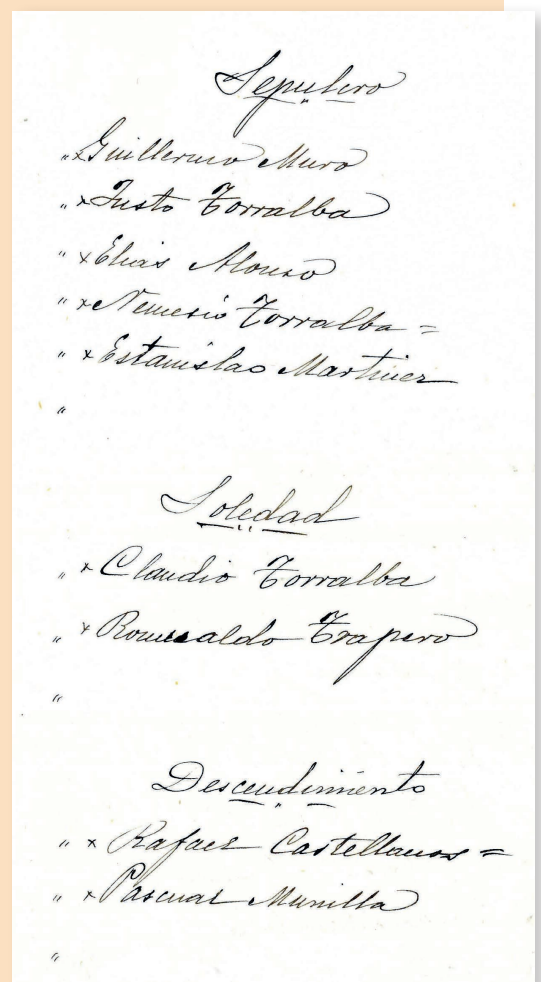 Sepulcro
" x Guillermo Muro
" x Justo Torralba
" x Elias Alonso
" x Nemesio Torralba =
" x Estanislao Martinez
"
Soledad
" x Claudio Torralba
" x Romualdo Trapero
"
Descendimiento
" x Rafael Castellanos =
" x Pascual Munilla
"